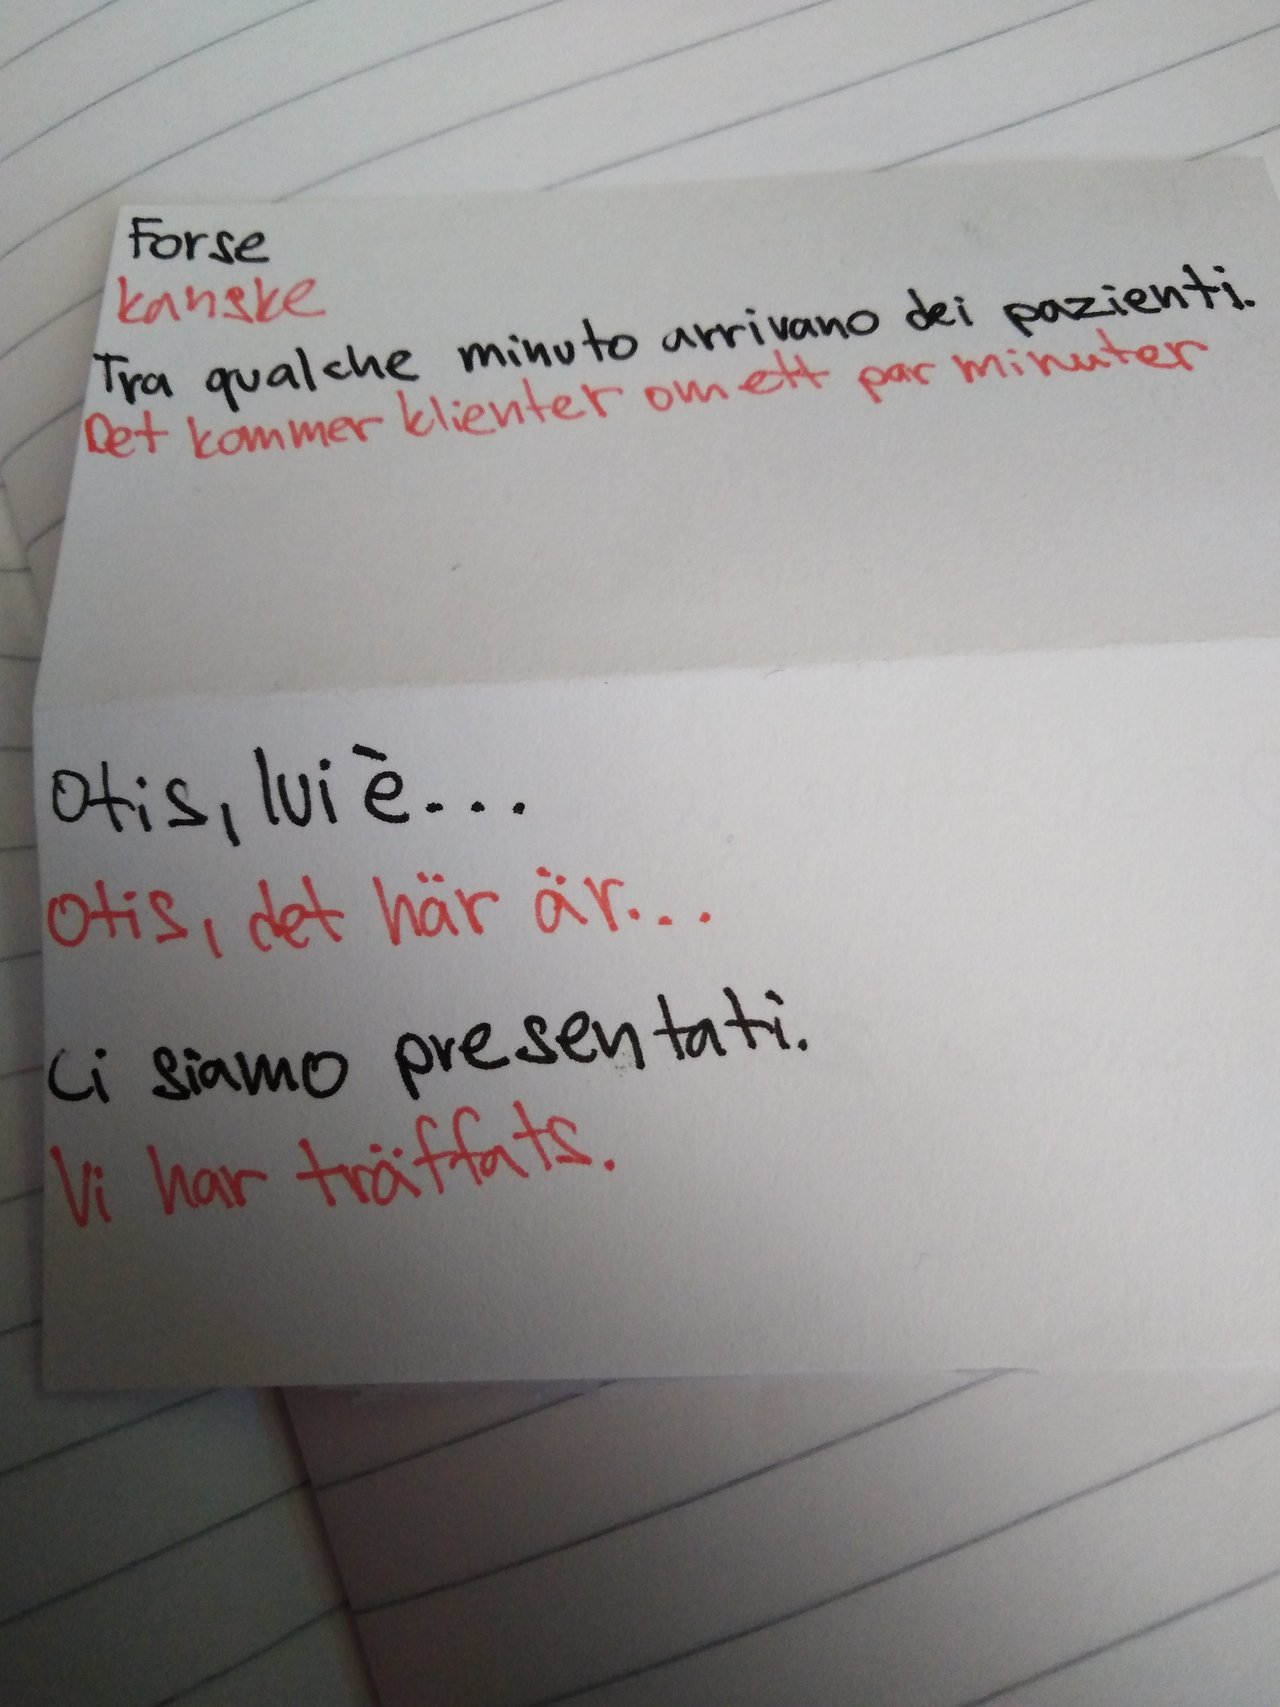 Forse
kanske
Tra qualche minuto arrivano dei pazienti.
Det kommer klienter om ett par minuter
Otis, lui è...
Otis, det här är...
Ci siamo presentati.
Vi har träffats.